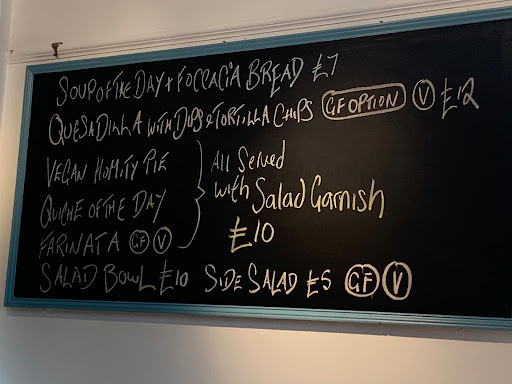 SOUP OF THE DAY + FOCCACIA BREAD £7
QUESADILLA WITH DIPS & TORTILLA CHIPS GF OPTION V £12
VEGAN HOMITY PIE
QUICHE OF THE DAY
FARINATA GF V
All Served
with Salad Garnish
£10
SALAD BOWL £10 SIDE SALAD £5 GF V